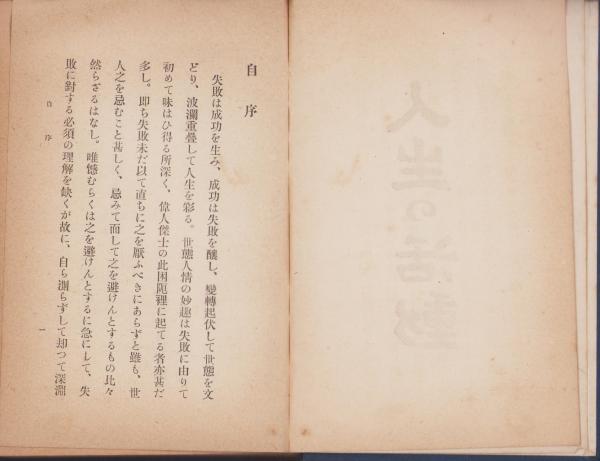 人生の活物
自序
失敗は成功を生み、成功は失敗を釀し、變轉起伏して世態を文
どり、波瀾重疊して人生を彩る。世態人情の妙趣は失敗に由りて
初めて味はひ得る所深く、偉人傑士の此困阨裡に起てる者亦甚だ
多し。卽ち失敗未だ以て直ちに之を厭ふべきにあらずと雖も、世
人之を忌むこと甚しく、忌みて而して之を避けんとするもの比々
然らざるはなし。唯憾むらくは之を避けんとするに急にして、失
敗に對する必須の理解を缺くが故に、自ら測らずして却つて深淵
自序
一